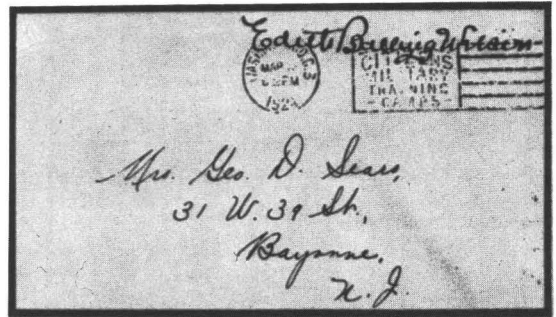 Edith Bolling Wilson
WASHINGTON, D.C. 3
MAR
PM
192
CITIZENS
MILITARY
TRAINING
CAMPS
Mrs. Geo. D. Sears,
31 W. 39 St.,
Bayonne,
N. J.